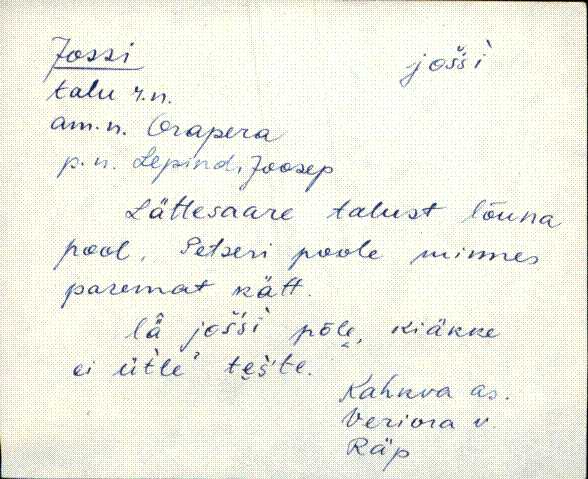 Jossi
jošši̬
talu r.n.
am.n. Orapera
p.n. Lepind, Joosep
Lättesaare talust lõuna
pool, Petseri poole minnes
paremat kätt.
lä jošši põle, kiäkke
ei ütle' tešte.
Kahkva as.
Veriora v.
Räp